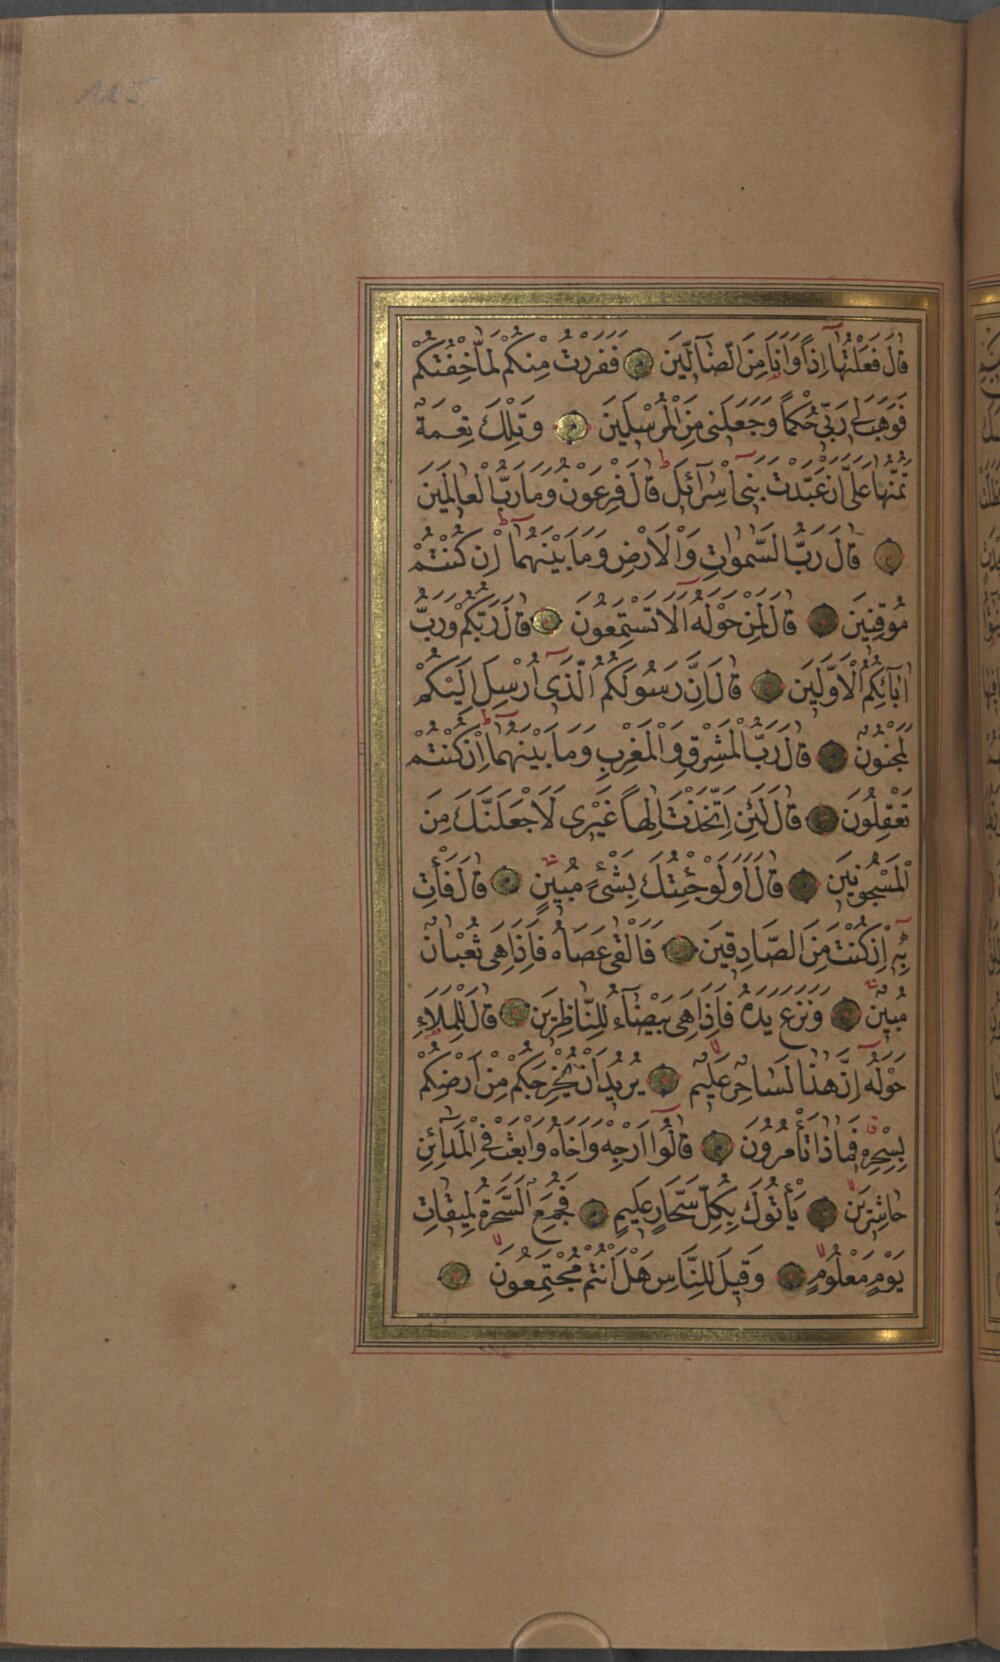 قَالَ فَعَلْتُهَٓا اِذًا وَاَنَا۬ مِنَ الضَّٓالّ۪ينَ فَفَرَرْتُ مِنْكُمْ لَمَّا خِفْتُكُمْ
فَوَهَبَ ل۪ي رَبّ۪ي حُكْمًا وَجَعَلَن۪ي مِنَ الْمُرْسَل۪ينَ وَتِلْكَ نِعْمَةٌ
تَمُنُّهَا عَلَيَّ اَنْ عَبَّدْتَ بَن۪ٓي اِسْرَٓائ۪لَ ط قَالَ فِرْعَوْنُ وَمَا رَبُّ الْعَالَم۪ينَ
قَالَ رَبُّ السَّمٰوَاتِ وَالْاَرْضِ وَمَا بَيْنَهُمَا ط اِنْ كُنْتُمْ
مُوقِن۪ينَ قَالَ لِمَنْ حَوْلَهُٓ اَلَا تَسْتَمِعُونَ قَالَ رَبُّكُمْ وَرَبُّ
اٰبَٓائِكُمُ الْاَوَّل۪ينَ قَالَ اِنَّ رَسُولَكُمُ الَّذ۪ٓي اُرْسِلَ اِلَيْكُمْ
لَمَجْنُونٌ قَالَ رَبُّ الْمَشْرِقِ وَالْمَغْرِبِ وَمَا بَيْنَهُمَا ط اِنْ كُنْتُمْ
تَعْقِلُونَ قَالَ لَئِنِ اتَّخَذْتَ اِلٰهًا غَيْر۪ي لَاَجْعَلَنَّكَ مِنَ
الْمَسْجُون۪ينَ قَالَ اَوَلَوْ جِئْتُكَ بِشَيْءٍ مُب۪ينٍ قَالَ فَأْتِ
بِه۪ٓ اِنْ كُنْتَ مِنَ الصَّادِق۪ينَ فَاَلْقٰى عَصَاهُ فَاِذَا هِيَ ثُعْبَانٌ
مُب۪ينٌ وَنَزَعَ يَدَهُ فَاِذَا هِيَ بَيْضَٓاءُ لِلنَّاظِر۪ينَ قَالَ لِلْمَلَاِ
حَوْلَهُٓ اِنَّ هٰذَا لَسَاحِرٌ عَل۪يمٌ يُر۪يدُ اَنْ يُخْرِجَكُمْ مِنْ اَرْضِكُمْ
بِسِحْرِه۪ فَمَاذَا تَأْمُرُونَ قَالُٓوا اَرْجِهْ وَاَخَاهُ وَابْعَثْ فِي الْمَدَٓائِنِ
حَاشِر۪ينَ يَأْتُوكَ بِكُلِّ سَحَّارٍ عَل۪يمٍ فَجُمِعَ السَّحَرَةُ لِم۪يقَاتِ
يَوْمٍ مَعْلُومٍ وَق۪يلَ لِلنَّاسِ هَلْ اَنْتُمْ مُجْتَمِعُونَ